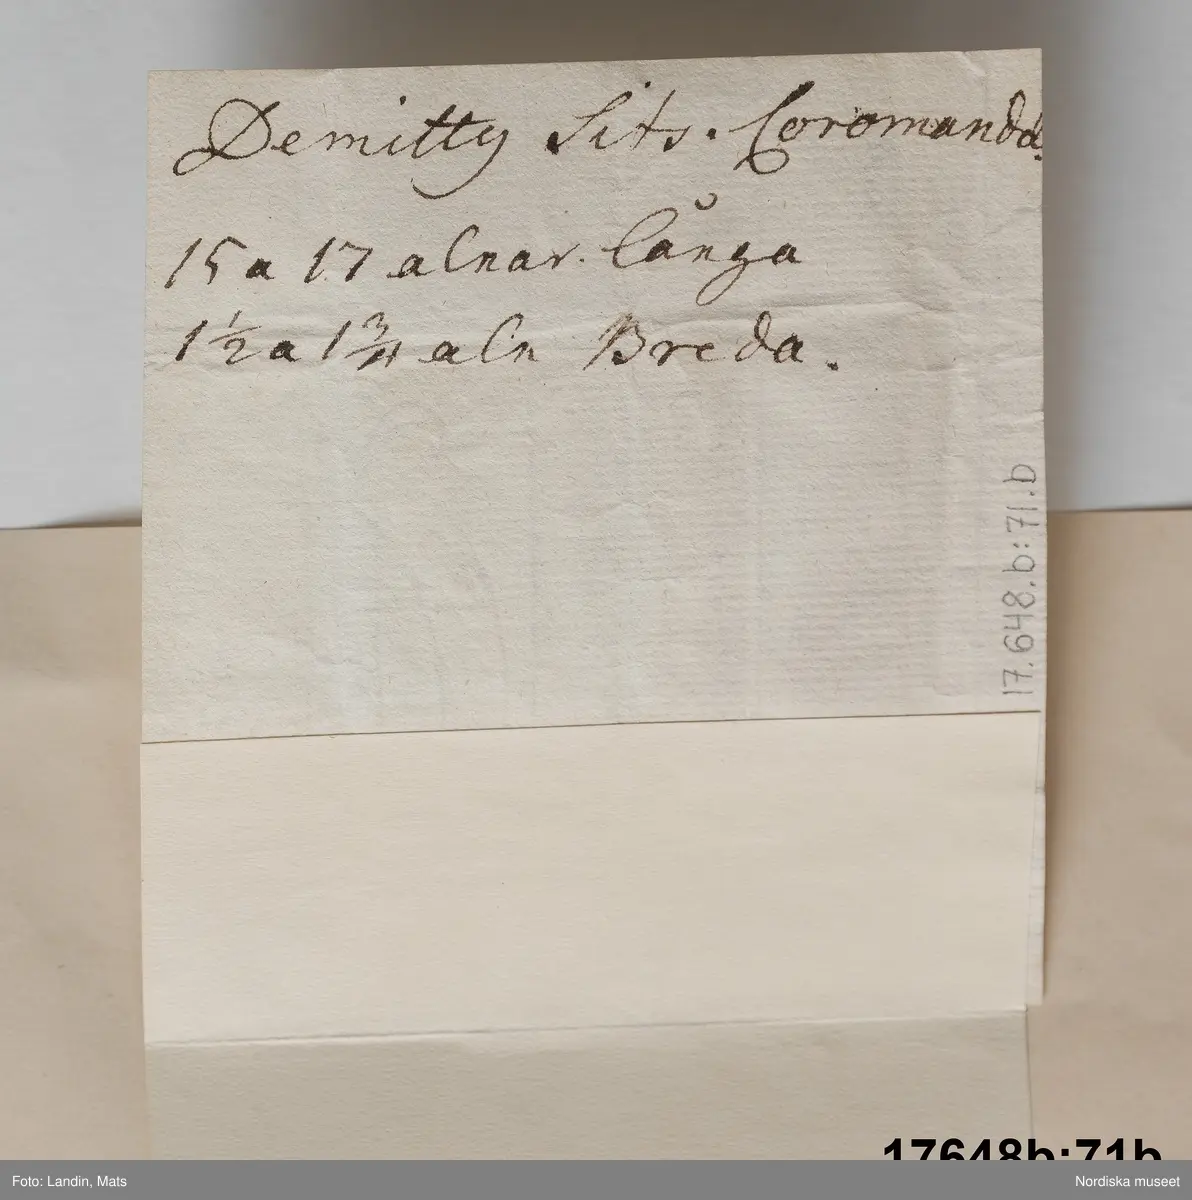 Demitty Sits. Coromandel.
15 a 17 alnar. långa
1 1/2 a 1 3/4 aln Breda.
17.648.b:71.b
17648b:71b
Foto: Landin, Mats
Nordiska museet